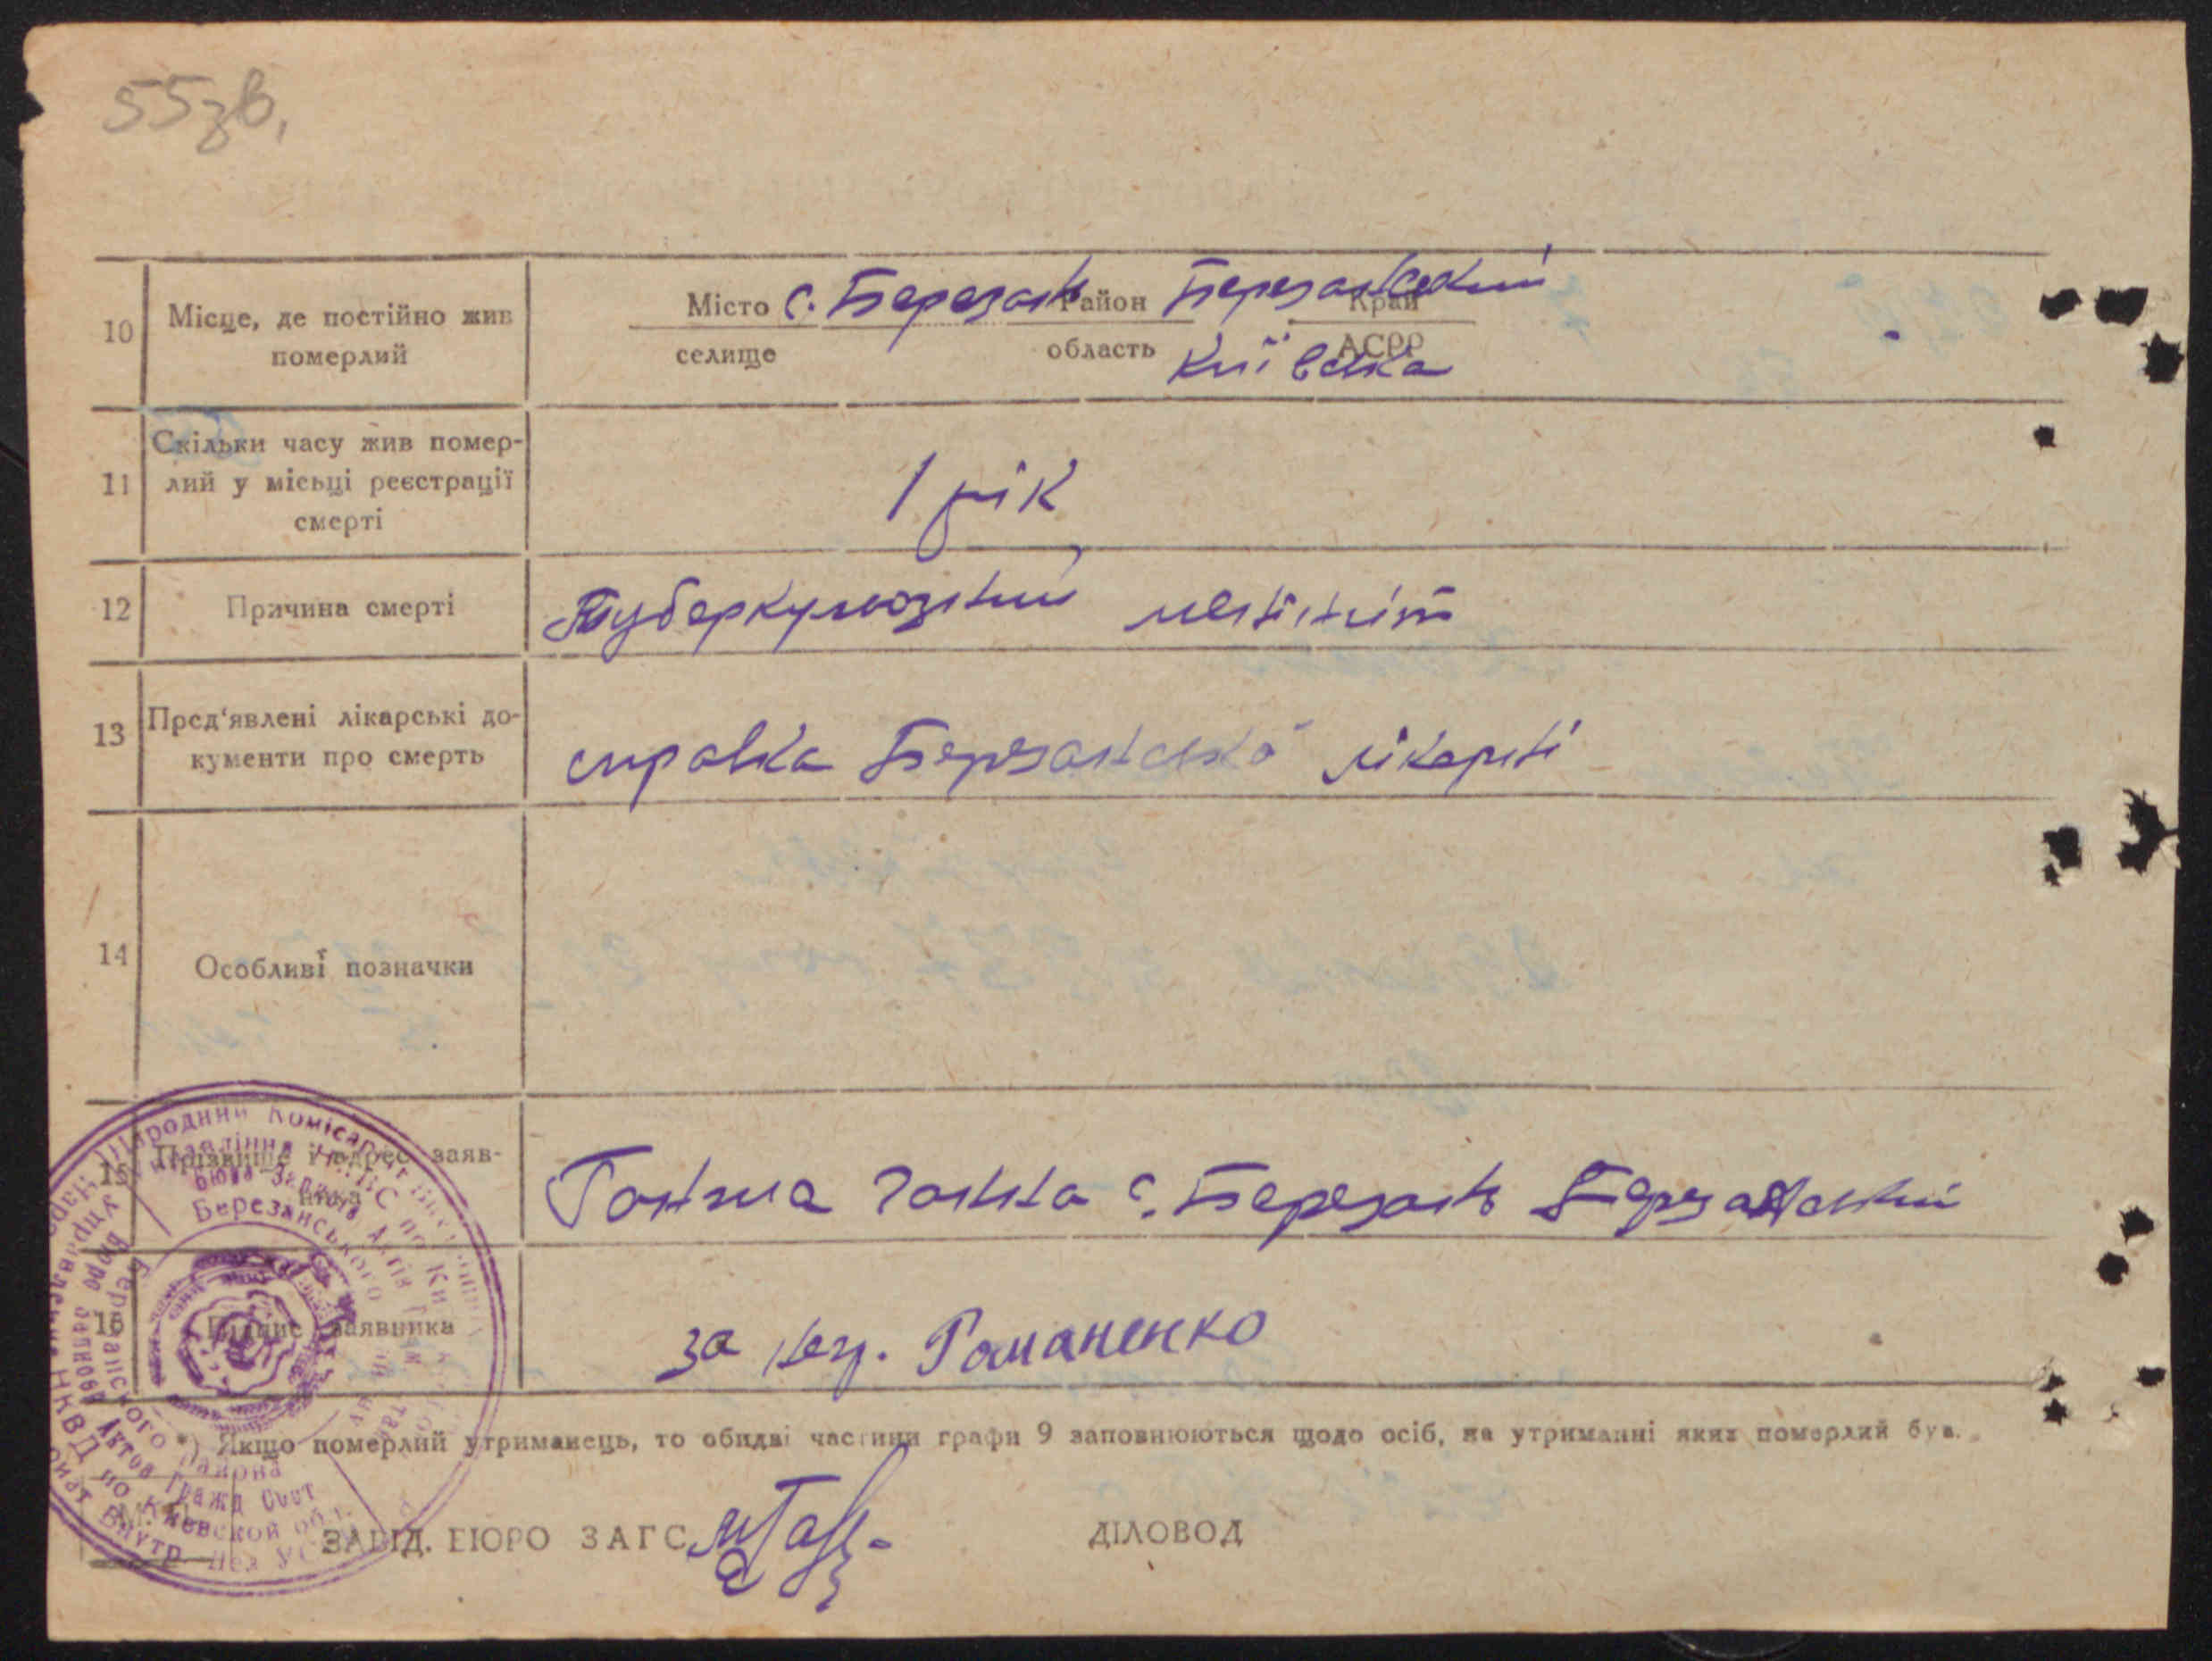 55зв.
10 Місце, де постійно жив померлий
Місто с. Березань Район Березанський Край
селище область Київська АСРР
11 Скільки часу жив помер-
лий у місьці реєстрації
смерті
1 рік
12 Причина смерті
Туберкульозний менінгіт
13 Пред'явлені лікарські до-
кументи про смерть
справка Березанської лікарні
14 Особливі позначки
15 Прізвище і адрес заяв-
ника
Ганна с. Березань Березанський
16 Підпис заявника
за нег. Романенко
*) Якщо померлий утриманець, то обидві частини графи 9 заповнюються щодо осіб, на утриманні яких померлий був.
М. П.
ЗАВІД. БЮРО ЗАГС
ДІЛОВОД
Народний Комісаріат Внутр
Управління НКВС по Київ
Бюро Запису Актів Гр
Березанського
Березанского района
Бюро Записей Актов Гражд Сост
Управление НКВД по Киевской обл.
Внутр Дел УС